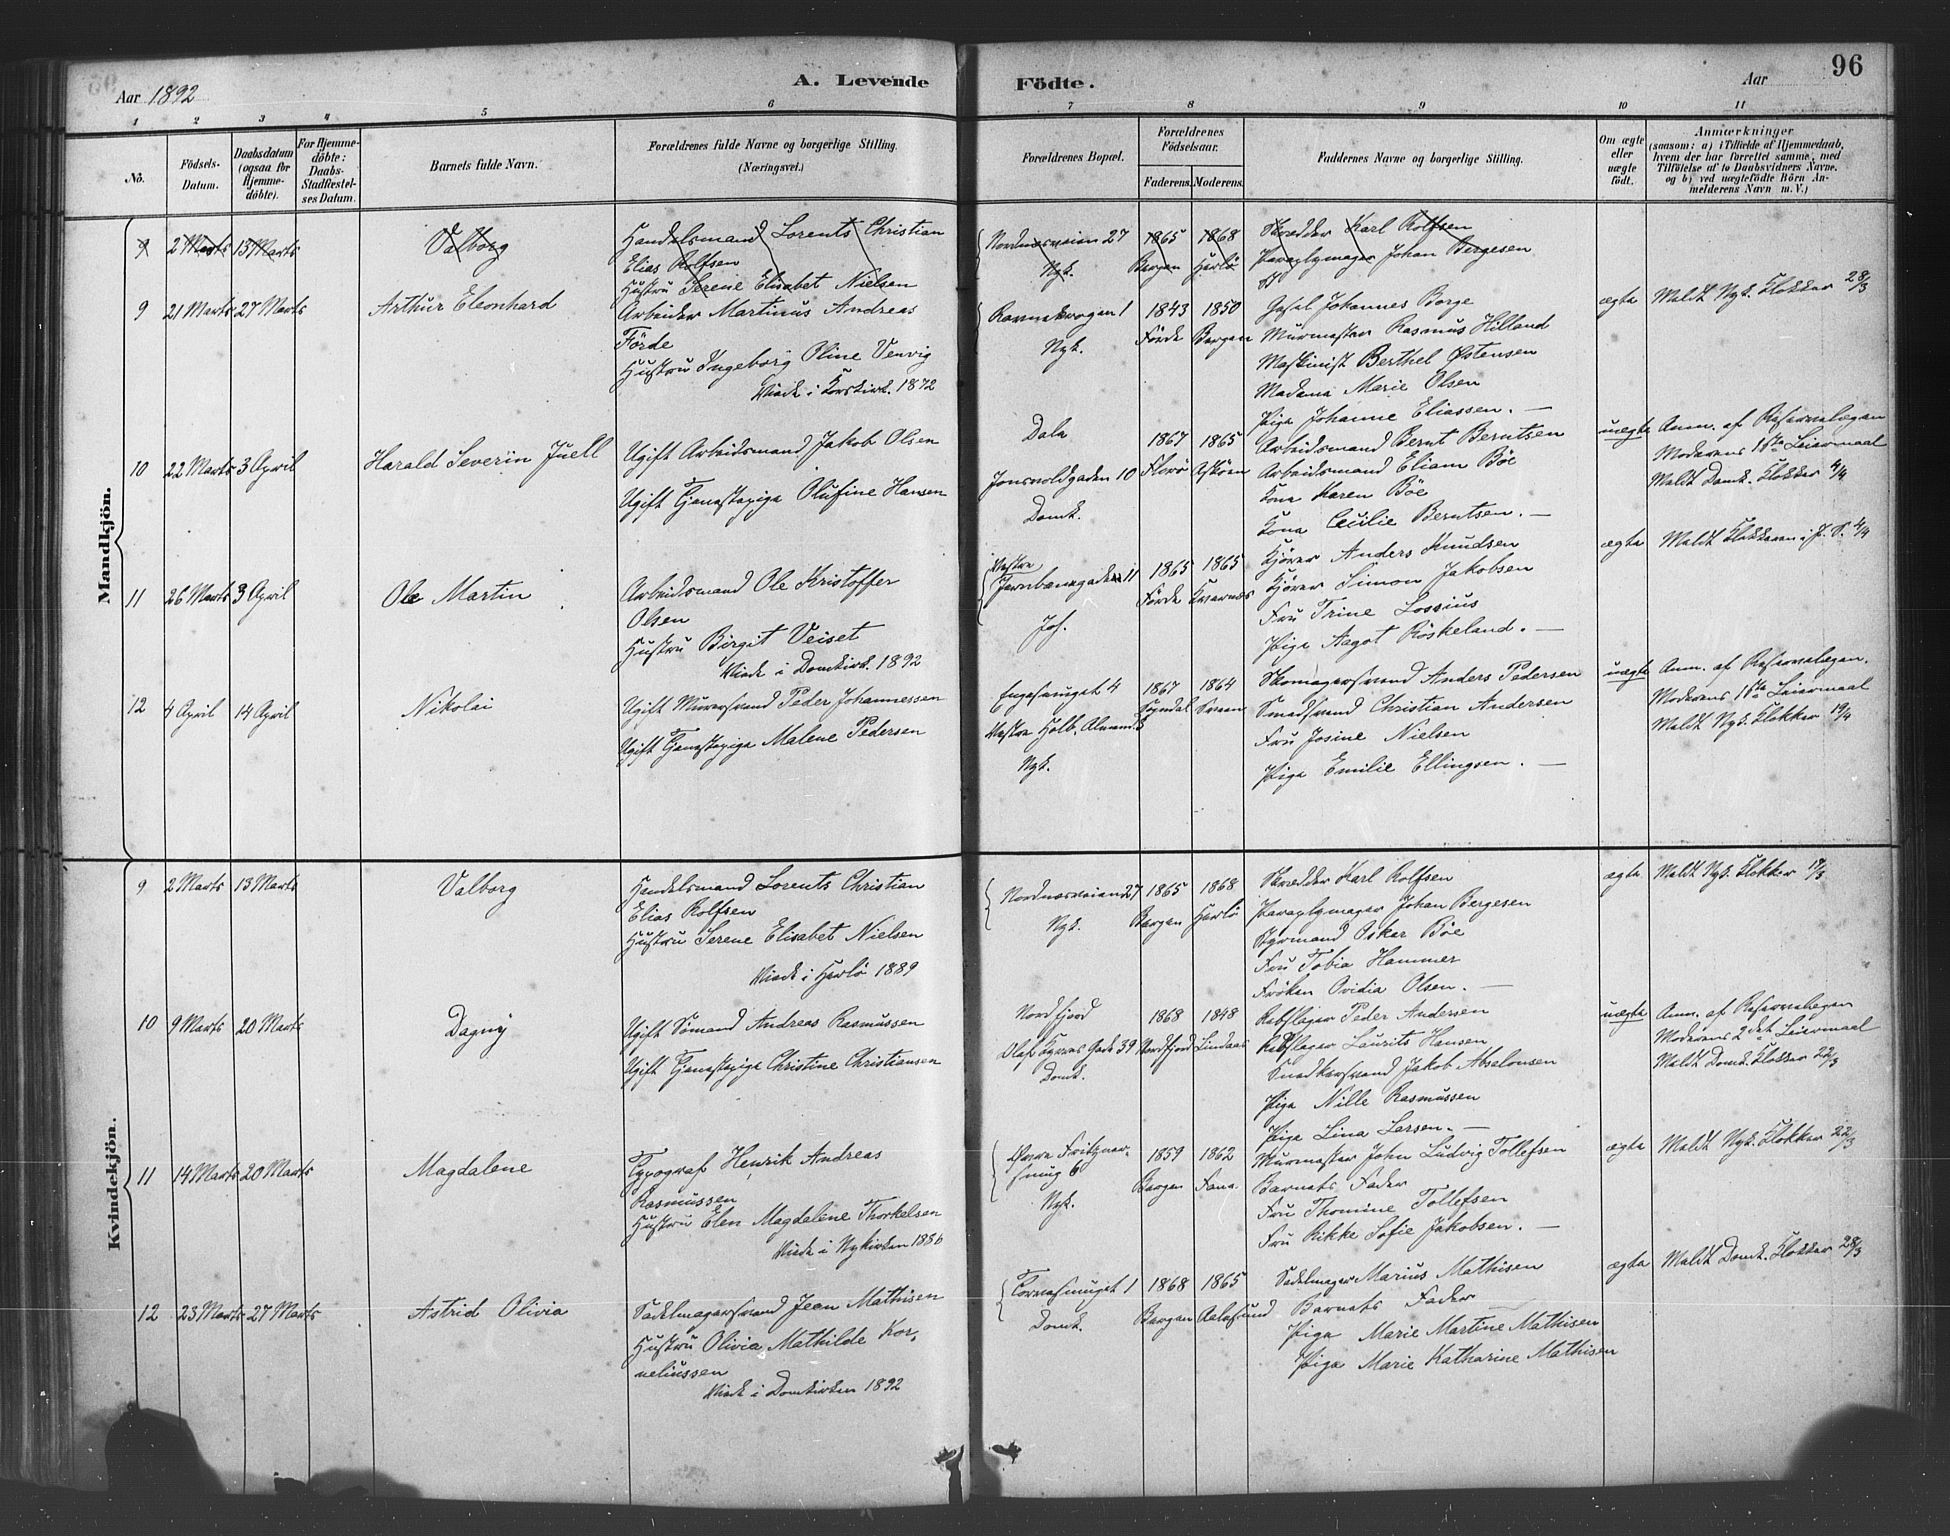 Aar 1892
A. Levende
Födte.
Aar
96
1 2 3 4 5 6 7 8 9 10 11
No.
Födsels-Datum.
Daabsdatum (ogsaa for Hjemme-döbte).
For Hjemme-döbte: Daabs-Stadfæstel-ses Datum.
Barnets fulde Navn.
Forældrenes fulde Navne og borgerlige Stilling.
(Næringsvei.)
Forældrenes Bopæl.
Forældrenes Födselsaar.
Faderens. Moderens.
Faddernes Navne og borgerlige Stilling.
Om ægte eller uægte födt.
Anmærkninger
(saasom: a) i Tilfælde af Hjemmedaab,
hvem der har forrettet samme, med
Tilföielse af to Daabsvidners Navne.
og b) ved uægtefödte Börn An-
melderens Navn m. V.)
Mandkjön.
9 2 Marts 13 Marts Valborg
Handelsmand Lorents Christian
Elias Rolfsen
Hustru Serene Elisabet Nielsen
Nordnæsveien 27
Nyk.
1865 1868
Bergen Herlö
Skrædder Karl Rolfsen
Paraplymager Johan Bergesen
9 21 Marts 27 Marts Arthur Eleonhard
Arbeider Martinus Andreas
Förde
Hustru Ingeborg Oline Venvig
Viede i Korskirk. 1872
Ravnekrogen 1
Nyk.
1843 1850
Förde Bergen
Gesel Johannes Borge
Murmester Rasmus Hilland
Maskinist Berthel Østensen
Madame Marie Olsen
Pige Johanne Eliassen. —
ægte
Meldt Nyk. Klokker 28/3
10 22 Marts 3 April Harald Severin Juell
Ugift Arbeidsmand Jakob Olsen
Ugift Tjenestepige Olufine Hansen
Dale
Jonsvoldgaden 10
Domk.
1867 1865
Florö Asköen
Arbeidsmand Bernt Berntsen
Arbeidsmand Eliam Böe
Kone Karen Böe
Kone Cecilie Berntsen. —
uægte
Anm. af Reservelægen
Moderens 1ste Leiermaal
Meldt Domk. Klokker 4/4
11 26 Marts 3 April Ole Martin
Arbeidsmand Ole Kristoffer
Olsen
Hustru Birgit Veiset
Viede i Domkirk. 1892
Vestre
Jernbanegaden 11
Joh.
1865 1865
Förde Kvernæs
Kjörer Anders Knudsen
Kjörer Simon Jakobsen
Fru Trine Lossius
Pige Aagot Röskeland. —
ægte
Meldt Klokkeren i J. S. 4/4
12 4 April 14 April Nikolai
Ugift Murersvend Peder Johannessen
Ugift Tjenestepige Malene Pedersen
Engesmuget 4
Vestre Holb. Almend. 3
Nyk.
1867 1864
Sogndal
Skomagersvend Anders Pedersen
Smedsvend Christian Andersen
Fru Josine Nielsen
Pige Emilie Ellingsen. —
uægte
Anm. af Reservelægen.
Moderens 1ste Leiermaal
Meldt Nyk. Klokker 19/4
Kvindekjön.
9 2 Marts 13 Marts Valborg
Handelsmand Lorents Christian
Elias Rolfsen
Hustru Serene Elisabet Nielsen
Viede i Herlö 1889
Nordnæsveien 27
Nyk.
1865 1868
Bergen Herlö
Skrædder Karl Rolfsen
Paraplymager Johan Bergesen
Styrmand Oskar Böe
Fru Tobia Hammer
Fröken Ovidia Olsen. —
ægte
Meldt Nyk. Klokker 17/3
10 9 Marts 20 Marts Dagny
Ugift Sömand Andreas Rasmussen
Ugift Tjenestepige Christine Christiansen
Nordfjord
Olaf Kyrres Gade 39
Domk.
1868 1848
Nordfjord Lindaas
Rebslager Peder Andersen
Rebslager Laurits Hansen
Snedkersvend Jakob Absalonsen
Pige Nille Rasmussen
Pige Lina Larsen. —
uægte
Anm. af Reservelægen
Moderens 2det Leiermaal
Meldt Domk. Klokker 22/3
11 14 Marts 20 Marts Magdalene
Typograf Henrik Andreas
Rasmussen
Hustru Elen Magdalene Thorkelsen
Viede i Nykirken 1886
Øvre Fritzner-
smug 6
Nyk.
1859 1862
Bergen Fane.
Murmester John Ludvig Tollefsen
Barnets Fader
Fru Thomine Tollefsen
Fru Rikke Sofie Jakobsen. —
ægte
Meldt Nyk. Klokker 22/3
12 23 Marts 27 Marts Astrid Olivia
Sadelmagersvend Jean Mathisen
Hustru Olivia Mathilde Kor-
neliussen
Viede i Domkirken 1892
1
Domk.
1868 1865
Bergen Aalesund
Sadelmager Marius Mathisen
Barnets Fader
Pige Marie Martine Mathisen
Pige Marie Katharine Mathisen
ægte
Meldt Domk. Klokker 28/3